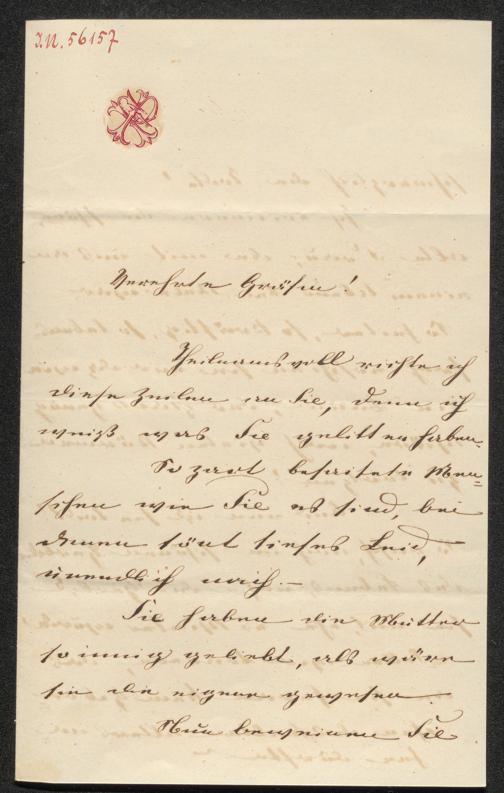 I.N. 56157
Verehrte Gräfin!
Theilnamsvoll richte ich
diese Zeilen an Sie, denn ich
weiß was Sie gelitten haben.
So zart besaitete Men=
schen wie Sie es sind, bei
denen tönt tiefes Leid,
unendlich nach. –
Sie haben die Mutter
so innig geliebt, als wäre
sie die eigene gewesen.
Nun beweinen Sie